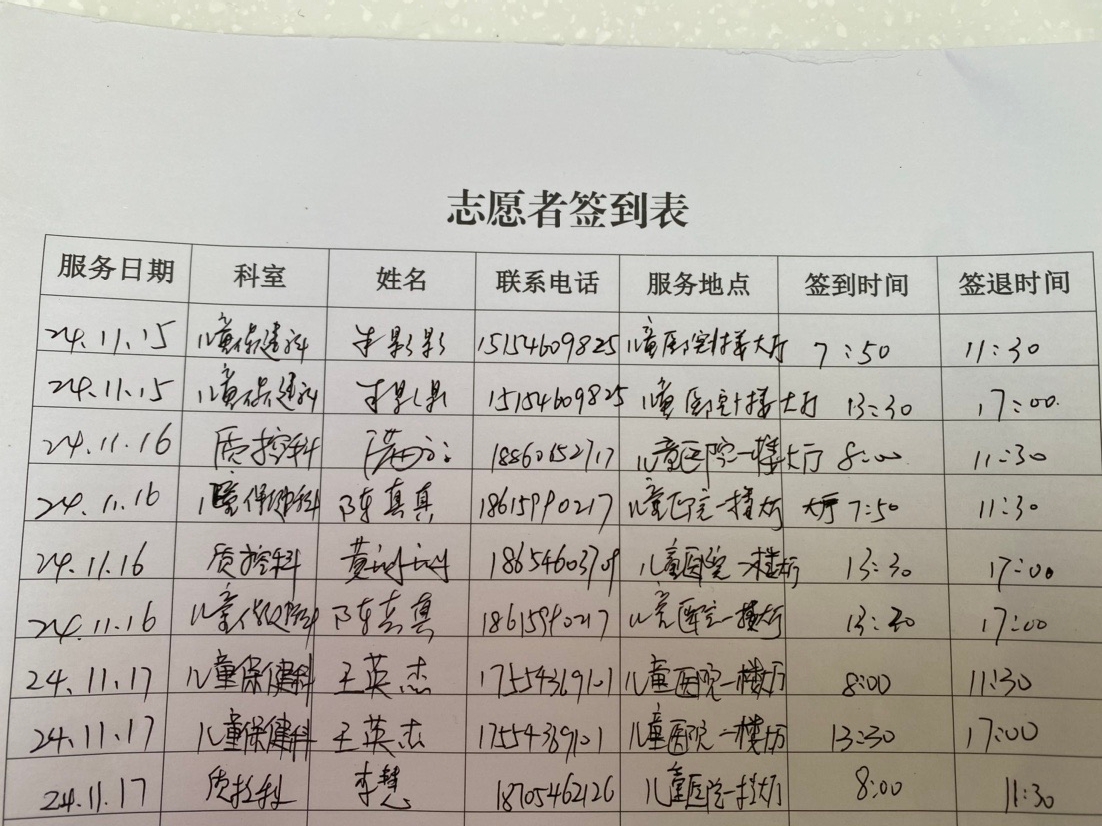 志愿者签到表
服务日期 科室 姓名 联系电话 服务地点 签到时间 签退时间
24.11.15 儿童保健科 影影 15154609825 儿童医院1楼大厅 7:50 11:30
24.11.15 儿童保健科 15154609825 儿童医院1楼大厅 13:30 17:00
24.11.16 质控科 18860152717 儿童医院一楼大厅 8:00 11:30
24.11.16 儿童保健科 陈真真 18615990217 儿童医院一楼大厅 大厅 7:50 11:30
24.11.16 质控科 黄 18654603709 儿童医院一楼大厅 13:30 17:00
24.11.16 儿童保健科 陈真真 18615990217 儿童医院一楼大厅 13:30 17:00
24.11.17 儿童保健科 王英杰 17554369101 儿童医院一楼大厅 8:00 11:30
24.11.17 儿童保健科 王英杰 17554369101 儿童医院一楼大厅 13:30 17:00
24.11.17 质控科 李慧 18705462126 儿童医院一楼大厅 8:00 11:30